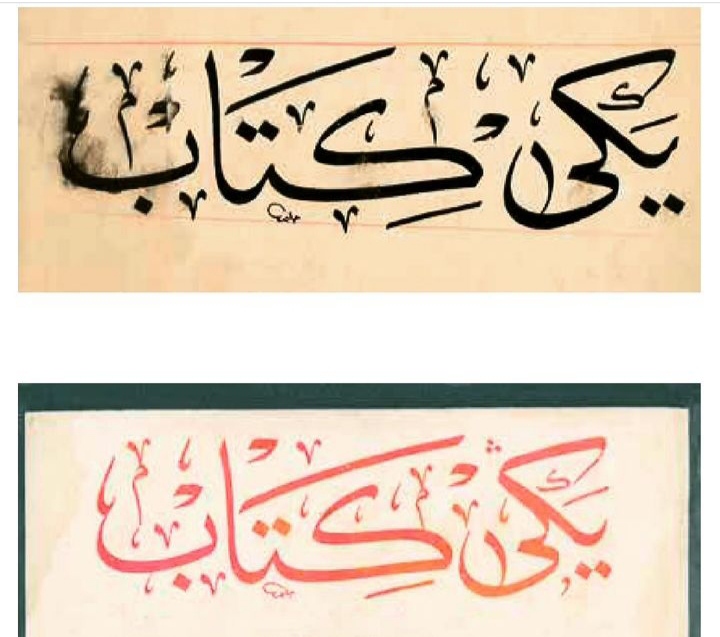 يكى كتاب
يڭى كتاب